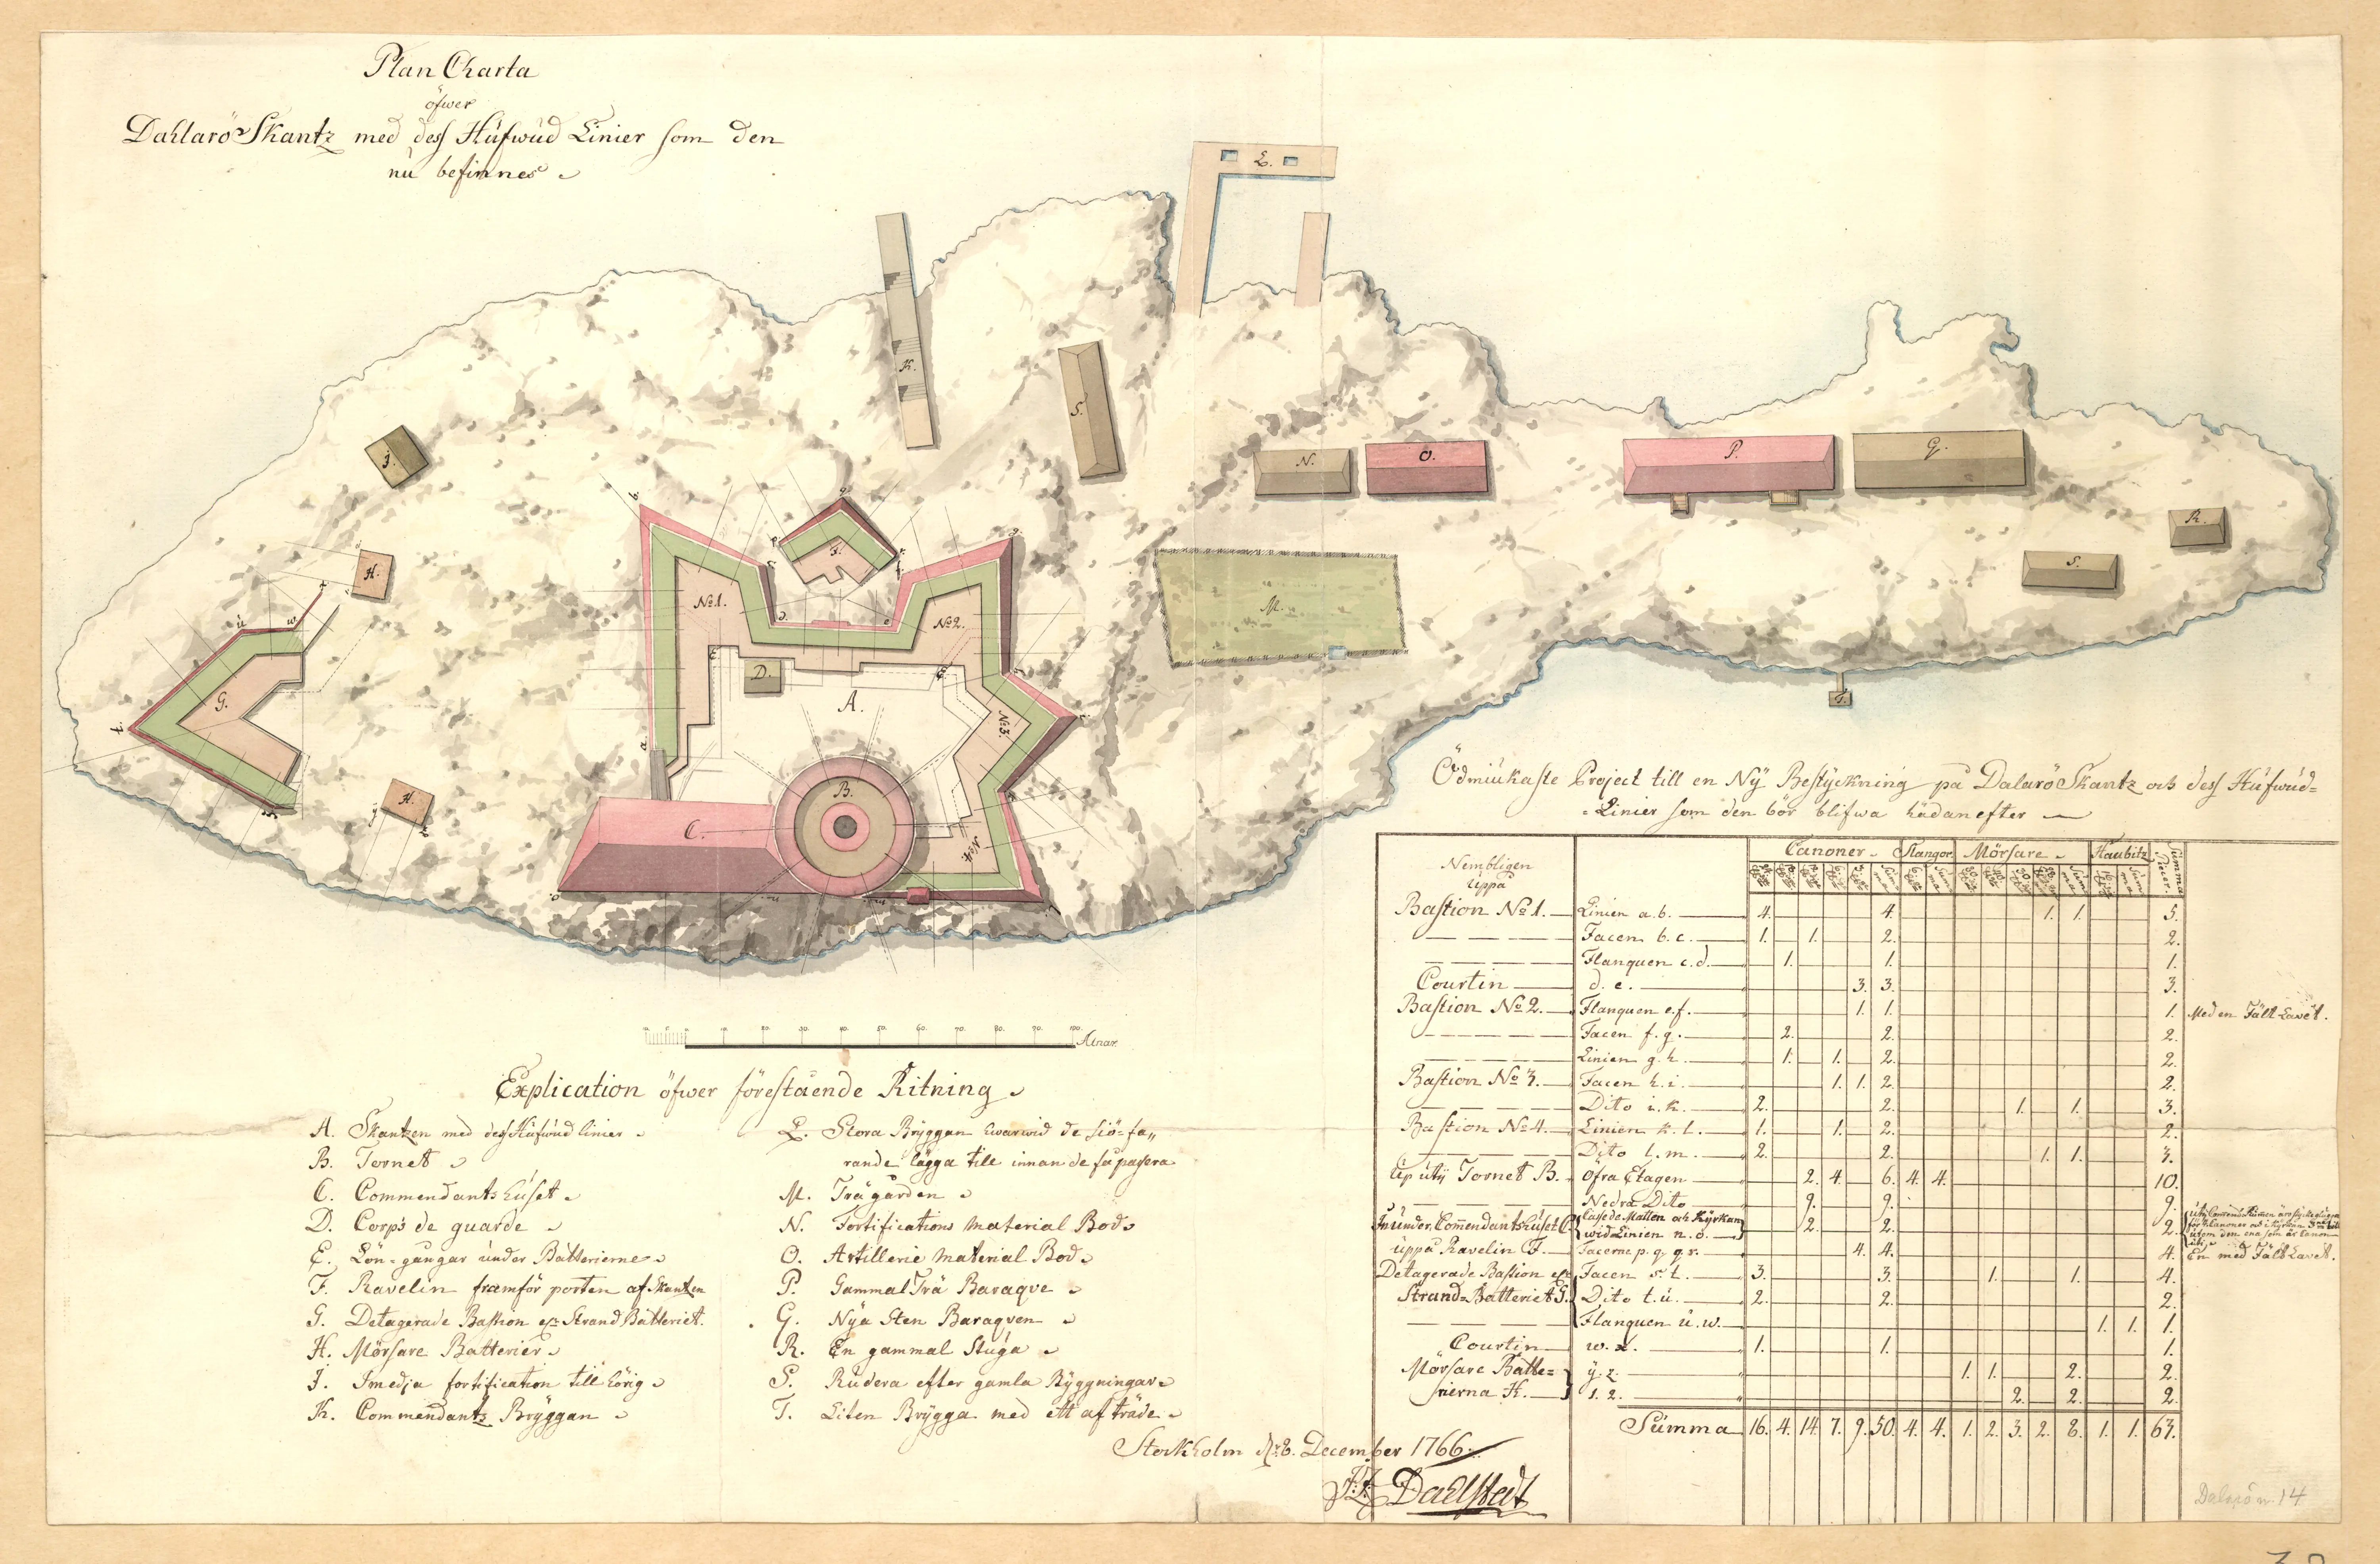 Plan Charta
öfwer
Dahlarö Skantz med dess Hüfwüd Linier som den
nü befinnes
L.
K.
S.
J.
N.
O.
P.
Q.
R.
S.
T.
H.
H.
G.
F.
No 1.
No 2.
No 3.
No 4.
D.
E.
A.
B.
C.
M.
Alnar.
Explication öfwer förestäende Ritning
A. Skantzen med dess Hüfwüd linier
B. Tornet
C. Commendants hüset
D. Corps de guarde
E. Lön-gångar ünder Batterierne
F. Ravelin framför porten af Skantzen
G. Detagerade Bastion Strand Batteriet.
H. Mörsare Batterier
J. Smedja fortification tillhörig
K. Commendants Bryggan
L. Stora Bryggan hwarwid de siö-fa„
rande lägga till innan de få passera
M. Trägården
N. Fortifications Material Bod
O. Artillerie Material Bod
P. Gammal Trä Baraque
Q. Nya Sten Baraquen
R. En gammal Stuga
S. Rudera efter gamla Byggningar
T. Liten Brygga med ett afträde
Stockholm d. 8. December 1766.
Dahlstedt
Ödmiukaste Project till en Ny Bestyckning på Dalarö Skantz och dess Hüfwüd=
Linier som den bör blifwa hädanefter
Nembligen Uppå Canoner Stångor Mörsare Haubitz Summa Piecer.
Bastion No 1. Linien a. b. 4. 4. 1. 1. 5.
Facen b. c. 1. 1. 2. 2.
Flanquen c. d. 1. 1. 1.
Courtin d. e. 3. 3. 3.
Bastion No 2. Flanquen e. f. 1. 1. 1. Med en Fält Lavet.
Facen f. g. 2. 2. 2.
Linien g. h. 1. 1. 2. 2.
Bastion No 3. Facen h. i. 1. 1. 2. 2.
Dito i. k. 2. 2. 1. 1. 3.
Bastion No 4. Linien k. l. 1. 1. 2. 2.
Dito l. m. 2. 2. 1. 1. 3.
Up uti Tornet B. Öfra Etagen 2. 4. 6. 4. 4. 10.
Nedra Dito 9. 9. 9.
Inunder Commendantshuset C. Cassematten och Kyrkan wid Linien n. o. 2. 2. 2.
uppå Ravelin F. Facerna p. q. q. r. 4. 4. 4. En med Fält Lavet.
Detagerade Bastion Facen s. t. 3. 3. 1. 1. 4.
Strand-Batteriet G. Dito t. u. 2. 2. 2.
Flanquen u. w. 1. 1. 1.
Courtin w. x. 1. 1. 1.
Mörsare Batte= y. z. 1. 1. 2. 2.
rierna H. 1. 2. 2. 2. 2.
Summa 16. 4. 14. 7. 9. 50. 4. 4. 1. 2. 3. 2. 8. 1. 1. 63.
Dalarö n. 14